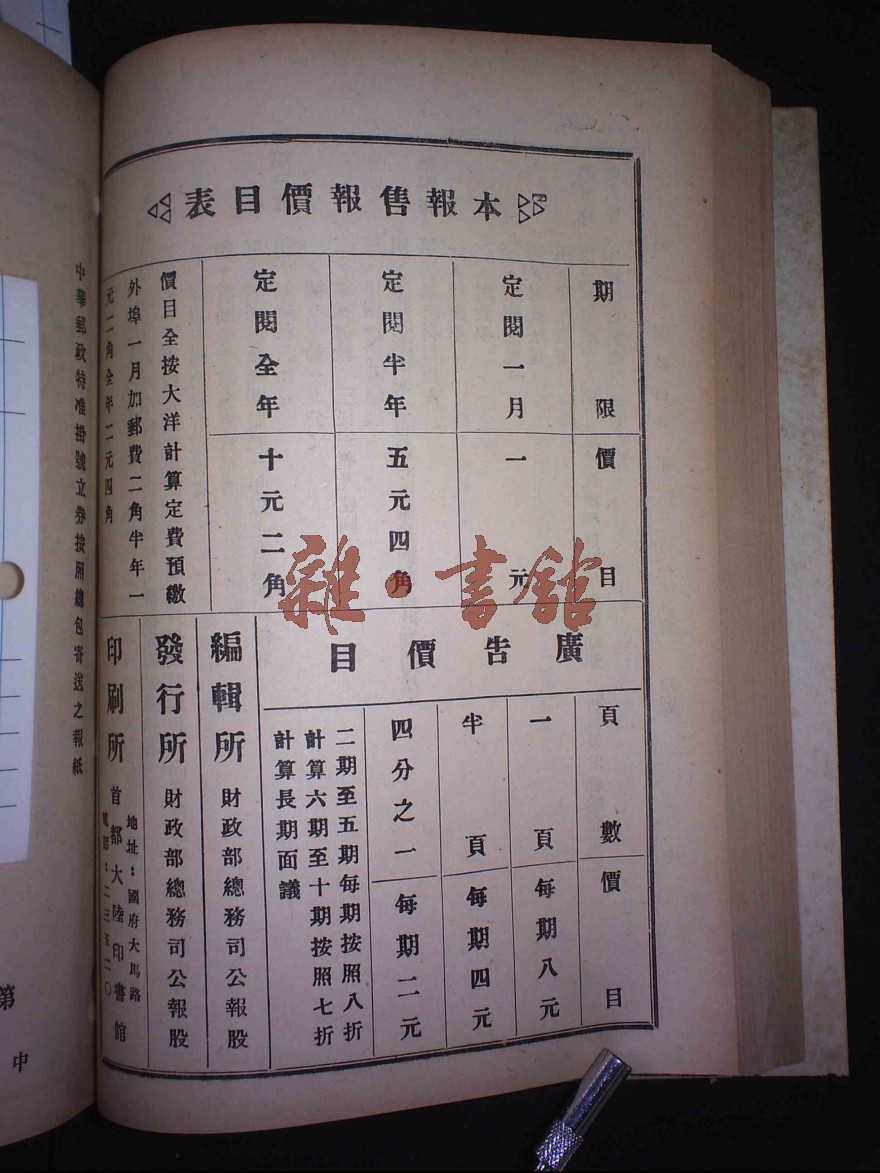 本報售報價目表
期限 價目
定閱一月 一元
定閱半年 五元四角
定閱全年 十元二角
價目全按大洋計算定費預繳
外埠一月加郵費二角半年一
元二角全年二元四角
廣告價目
頁數 價目
一頁 每期八元
半頁 每期四元
四分之一 每期二元
二期至五期每期按照八折
計算六期至十期按照七折
計算長期面議
編輯所 財政部總務司公報股
發行所 財政部總務司公報股
印刷所 首都大陸印書館
地址:國府大馬路
中華郵政特准掛號立券按照總包寄送之報紙
第
中
雜·書館